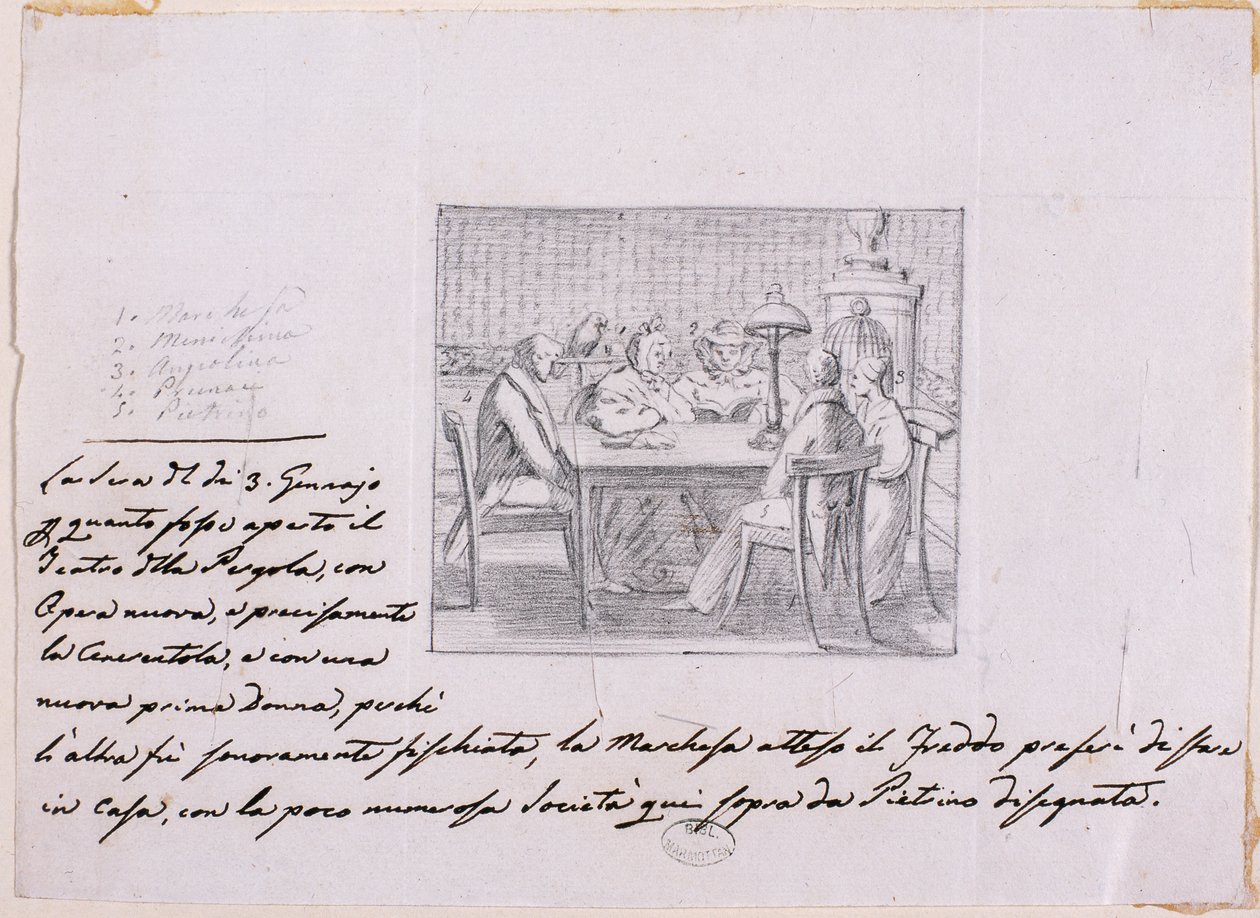 1. Marchesa
2. Minissina
3. Angiolina
4.
5. Pietrino
La sera dl di 3. Gennajo
quanto fosse aperto il
Teatro dlla Pergola, con
Opera nuova, e precisamente
la Cenerentola, e con una
nuova prima Donna, perchè
l'altra fù sonoramente fischiata, la Marchesa atteso il Freddo preferì di stare
in Casa, con la poco numerosa Società qui sopra da Pietrino disegnata.
BIBL.
MARMOTTAN